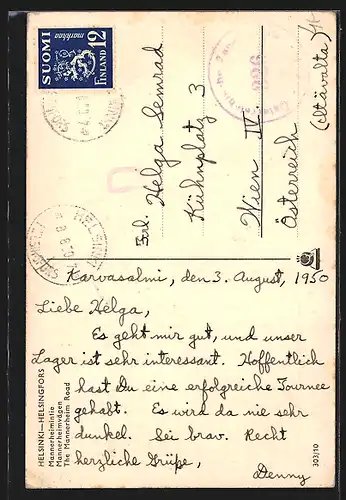 SUOMI
markkaa
12
FINLAND
Frl. Helga Semrad
Kühnplatz 3
Wien IV.
Österreich
(Itävalta)
Karvasalmi, den 3. August, 1950
Liebe Helga,
Es geht mir gut, und unser
Lager ist sehr interessant. Hoffentlich
hast Du eine erfolgreiche Tournee
gehabt. Es wird da nie sehr
dunkel. Sei brav. Recht
herzliche Grüße,
Denny
HELSINKI—HELSINGFORS
Mannerheimintie
Mannerheimvägen
The Mannerheim Road
303/10